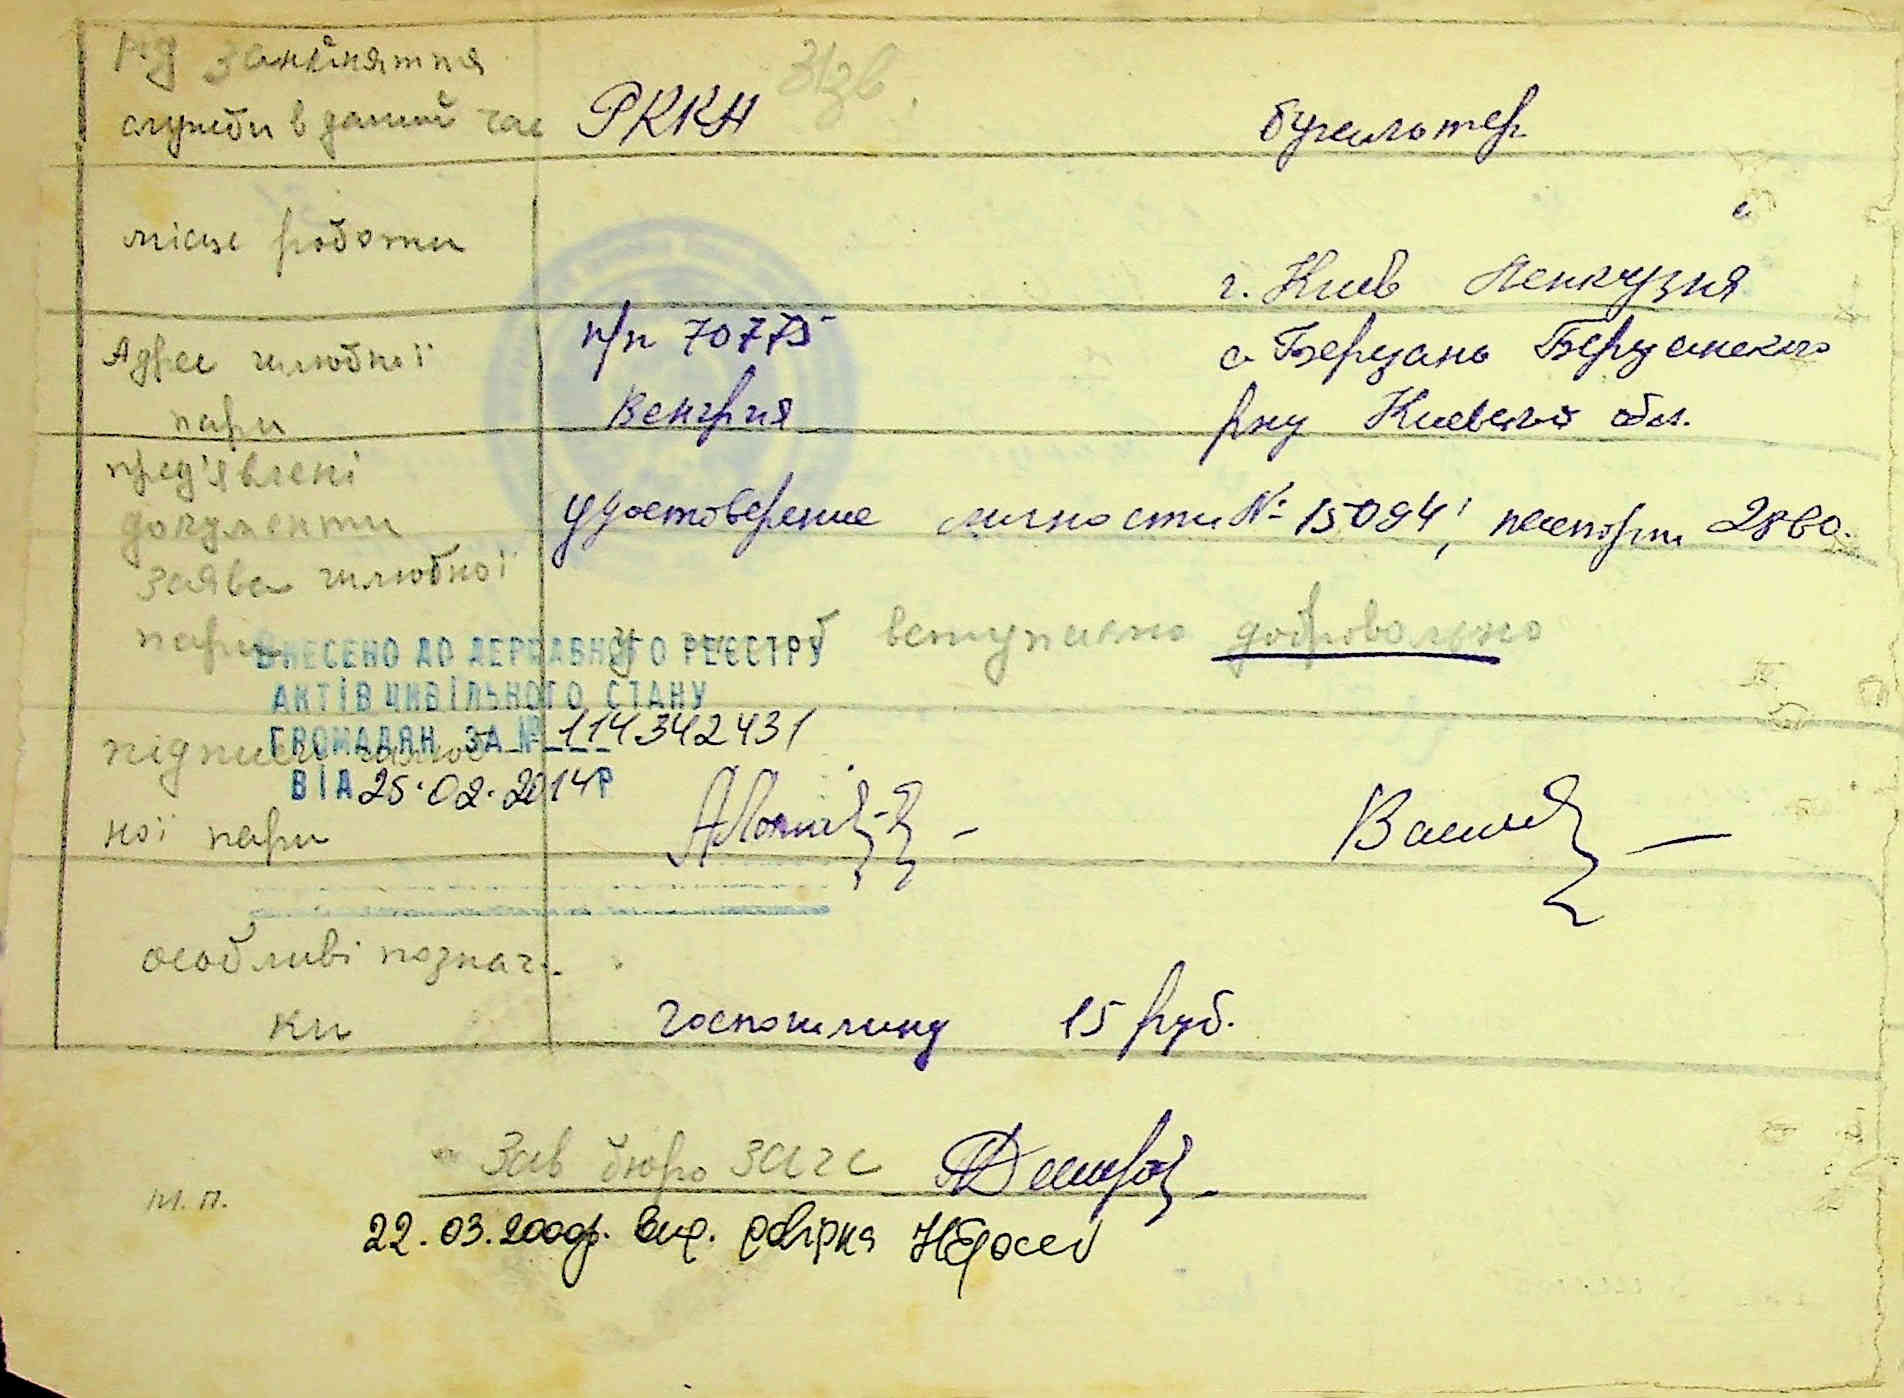 заняття
служби в даний час РККА бухгалтер
місце роботи
г. Киев Ленкузня
Адрес шлюбної п/п 70775 с. Березань Березанского
пари Венгрия рну Киевской обл.
пред'явлені
документи удостоверение личности № 15094, паспорт 2860.
заява шлюбної
пари вступаємо добровольно
ВНЕСЕНО ДО ДЕРЖАВНОГО РЕЄСТРУ
АКТІВ ЦИВІЛЬНОГО СТАНУ
ГРОМАДЯН ЗА № 114342431
ВІД 25.02.2014Р
підписи
ної пари
особливі познач-
ки госпошлину 15 руб.
Зав бюро загс
м. п.
22.03.2000р. вид. довідка